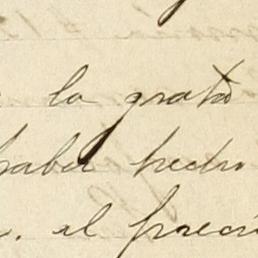 la grata
haber hecho
el preci